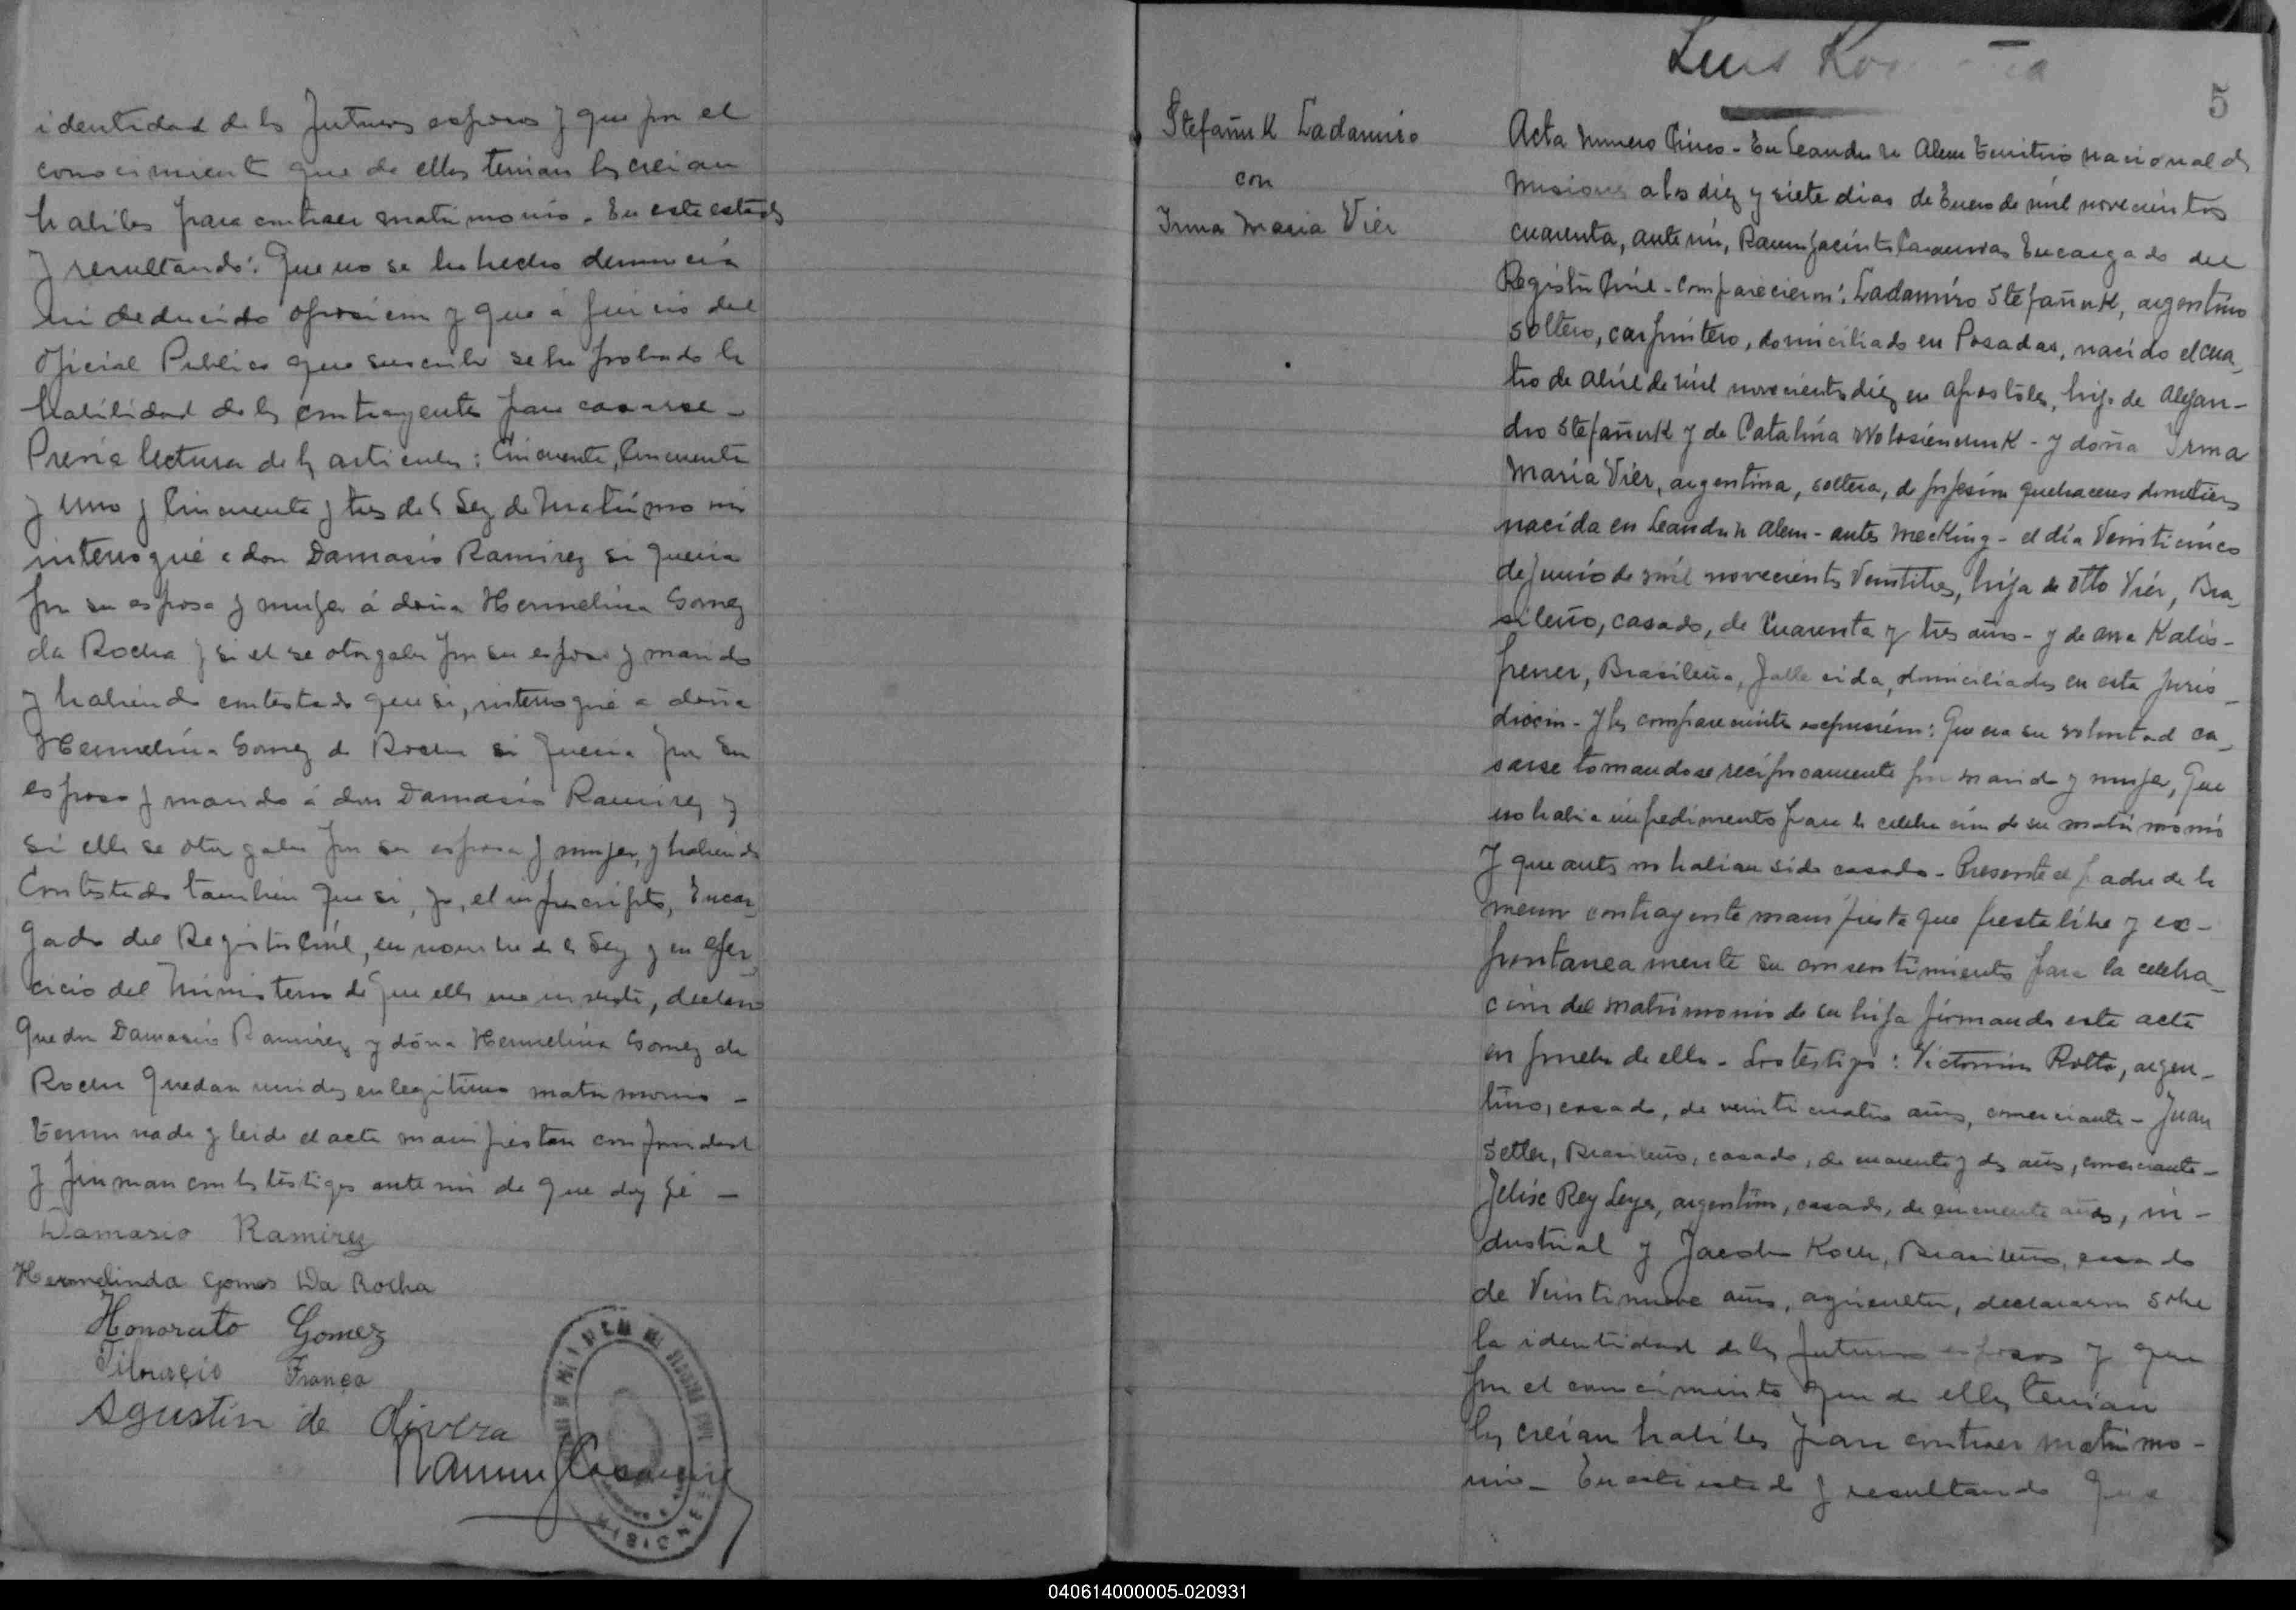 identidad de ls futuros esposos y que por el
conocimiento que de ellos tenian los creian
habiles para contraer matrimonio. En este estado
y resultando: Que no se ha hecho denuncia
ni deducido oposicion y que á juicio del
Oficial Publico que suscribe se ha probado la
habilidad de ls contrayentes para casarse -
Previa lectura de ls articulos: Cincuenta, Cincuenta
y uno y Cincuenta y tres de la Ley de Matrimonio
interrogué a don Damasio Ramirez si queria
por su esposa y mujer á doña Hermelina Gomez
da Rocha y si el se otorgaba por su esposo y marido
y habiendo contestado que si, interrogué a doña
Hermelina Gomez da Rocha si queria por su
esposo y marido á don Damasio Ramirez y
si ella se otorgaba por su esposa y mujer, y habiendo
Contestado tambien que si, yo, el infrascripto, Encar_
gado del Registro Civil, en nombre de la Ley y en ejer_
cicio del Ministerio de que ella me inviste, declaro
Que don Damasio Ramirez y doña Hermelina Gomez da
Rocha Quedan unidos en legitimo matrimonio -
Terminada y leida el acta manifiestan conformidad
y firman con ls testigos ante mi de que doy fé -
Damasio Ramirez
Hermelinda Gomes Da Rocha
Honorato Gomez
França
Agustin de Olivera
Luis
5
Stefañuk Ladamiro
con
Irma Maria Vier
Acta Numero Cinco - En Leandro N Alem Territorio nacional de
Misiones a los diez y siete dias de Enero de mil novecientos
cuarenta, ante mi, Encargado del
Registro Civil - Comparecieron: Ladamiro Stefañuk, argentino
soltero, carpintero, domiciliado en Posadas, nacido el cua_
tro de Abril de mil novecientos diez en Apostoles, hijo de Alejan-
dro Stefañuk y de Catalina - y doña Irma
Maria Vier, argentina, soltera, de profesión quehaceres domésticos
nacida en Leandro N Alem - antes Mecking - el día Veinticinco
de Junio de mil novecientos Veintitres, hija de Otto Vier, Bra_
sileño, casado, de Cuarenta y tres años - y de Ana Kalis-
frener, Brasileña, fallecida, domiciliados en esta juris_
dicción - y ls comparecientes expresaron: Que era su voluntad ca_
sarse tomandose recíprocamente por marido y mujer, Que
no habia impedimento para la celebracion de su matrimonio
Y que antes no habian sido casados - Presente el padre de la
menor contrayente manifiesta que presta libre y ex-
pontanea mente su consentimiento para la celebra_
ción del matrimonio de su hija firmando esta acta
en prueba de ello - Los testigos: Rotta, argen-
tino, casado, de veinti cuatro años, comerciante - Juan
Setler, Brasileño, casado, de cuarenta y ds años, comerciante -
Felix Rey Leyes, argentino, casado, de cincuenta años, in-
dustrial y Jacobo Koch, Brasileño, casado
de Veintinueve años, agricultor, declararon sobre
la identidad de ls futuros esposos y que
por el conocimiento que de ellos tenian
ls creian habiles para contraer matrimo-
nio - En este estado y resultando Que
040614000005-020931